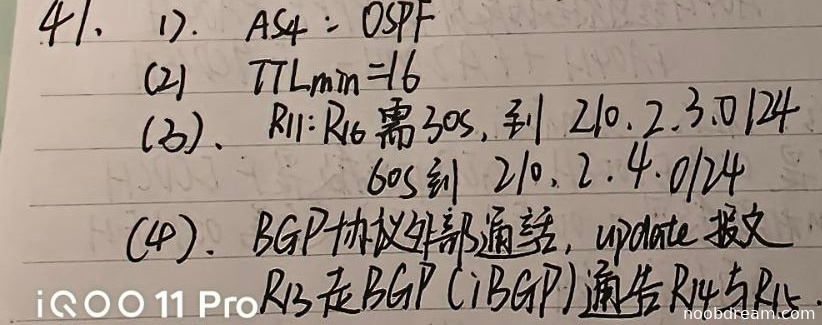 41. 1). AS4: OSPF
(2) TTLmin=16
(3). R11: R16需30s, 到 210.2.3.0/24
60s到 210.2.4.0/24
(4). BGP协议外部通话, update 报文
R13走BGP(iBGP)通告R14与R15.
iQOO 11 Pro
noobdream.com